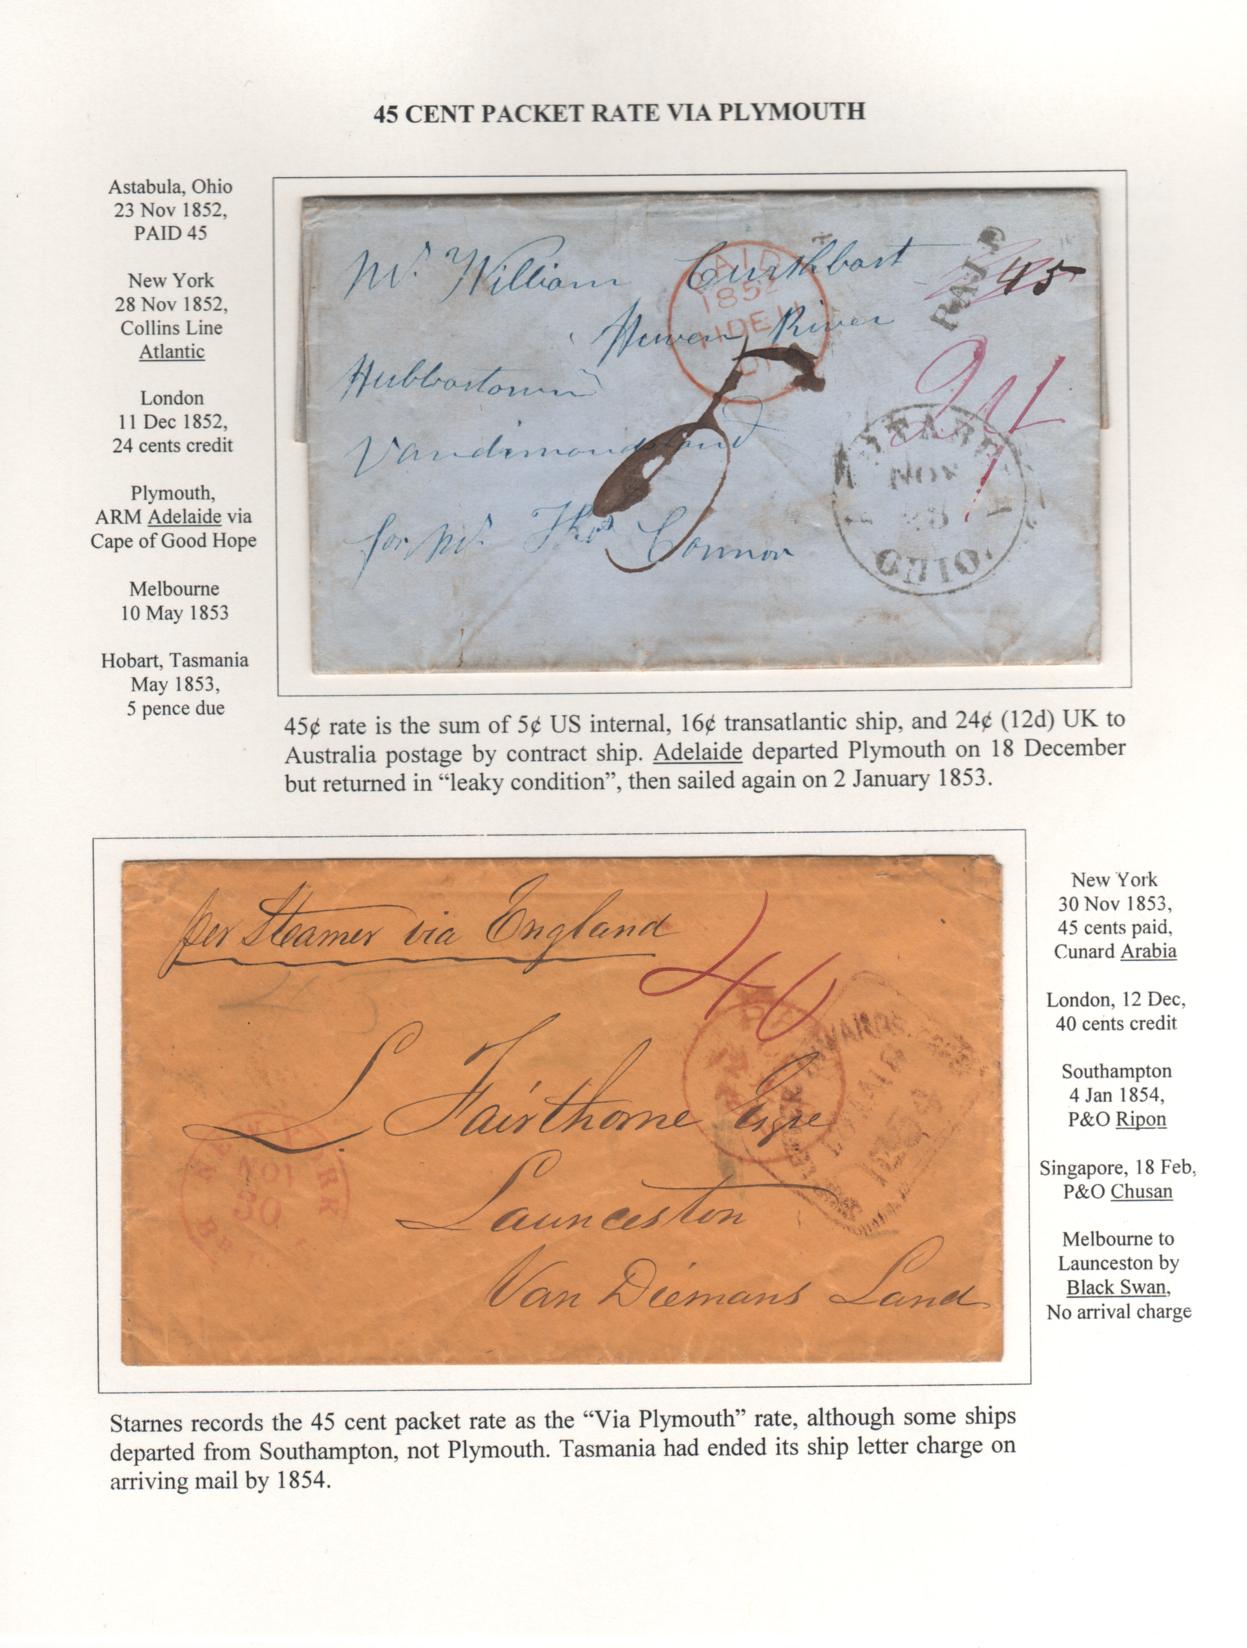 45 CENT PACKET RATE VIA PLYMOUTH
Astabula, Ohio
23 Nov 1852,
PAID 45
New York
28 Nov 1852,
Collins Line
Atlantic
London
11 Dec 1852,
24 cents credit
Plymouth,
ARM Adelaide via
Cape of Good Hope
Melbourne
10 May 1853
Hobart, Tasmania
May 1853,
5 pence due
Mr. William Curthbart
River
Hubbartown
Vandimonsland
for Mr. Thos Connor
PAID
1852
11DE11
PAID
45
24
5
NOV
OHIO.
45¢ rate is the sum of 5¢ US internal, 16¢ transatlantic ship, and 24¢ (12d) UK to
Australia postage by contract ship. Adelaide departed Plymouth on 18 December
but returned in “leaky condition”, then sailed again on 2 January 1853.
per Steamer via England
45
40
L Fairthorne Esqre
Launceston
Van Diemans Land
NEW YORK
NOV
30
New York
30 Nov 1853,
45 cents paid,
Cunard Arabia
London, 12 Dec,
40 cents credit
Southampton
4 Jan 1854,
P&O Ripon
Singapore, 18 Feb,
P&O Chusan
Melbourne to
Launceston by
Black Swan,
No arrival charge
Starnes records the 45 cent packet rate as the “Via Plymouth” rate, although some ships
departed from Southampton, not Plymouth. Tasmania had ended its ship letter charge on
arriving mail by 1854.